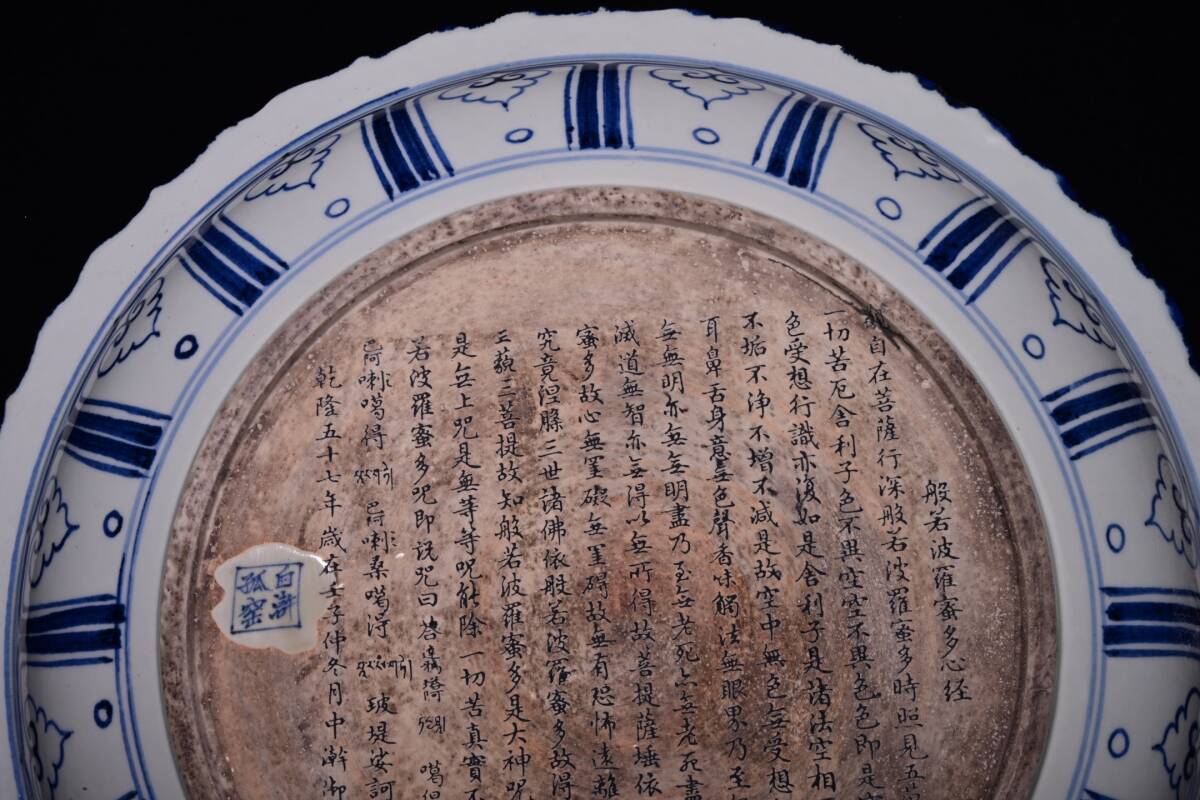 般若波羅蜜多心経
自在菩薩行深般若波羅蜜多時照見五
一切苦厄舍利子色不異空空不異色色即是
色受想行識亦復如是舍利子是諸法空相
不垢不浄不增不減是故空中無色無受想
耳鼻舌身意無色聲香味觸法無眼界乃至
無無明亦無無明盡乃至無老死亦無老死盡
滅道無智亦無得以無所得故菩提薩埵依
蜜多故心無罣礙無罣碍故無有恐怖遠離
究竟涅槃三世諸佛依般若波羅蜜多故得
三藐三菩提故知般若波羅蜜多是大神呪
是無上咒是無等等呪能除一切苦真實不
若波羅蜜多呪即說咒曰
喇噶得 喇桑噶得 玻堤薩訶
乾隆五十七年歲在壬子仲冬月中澣御
白滸
孤窑